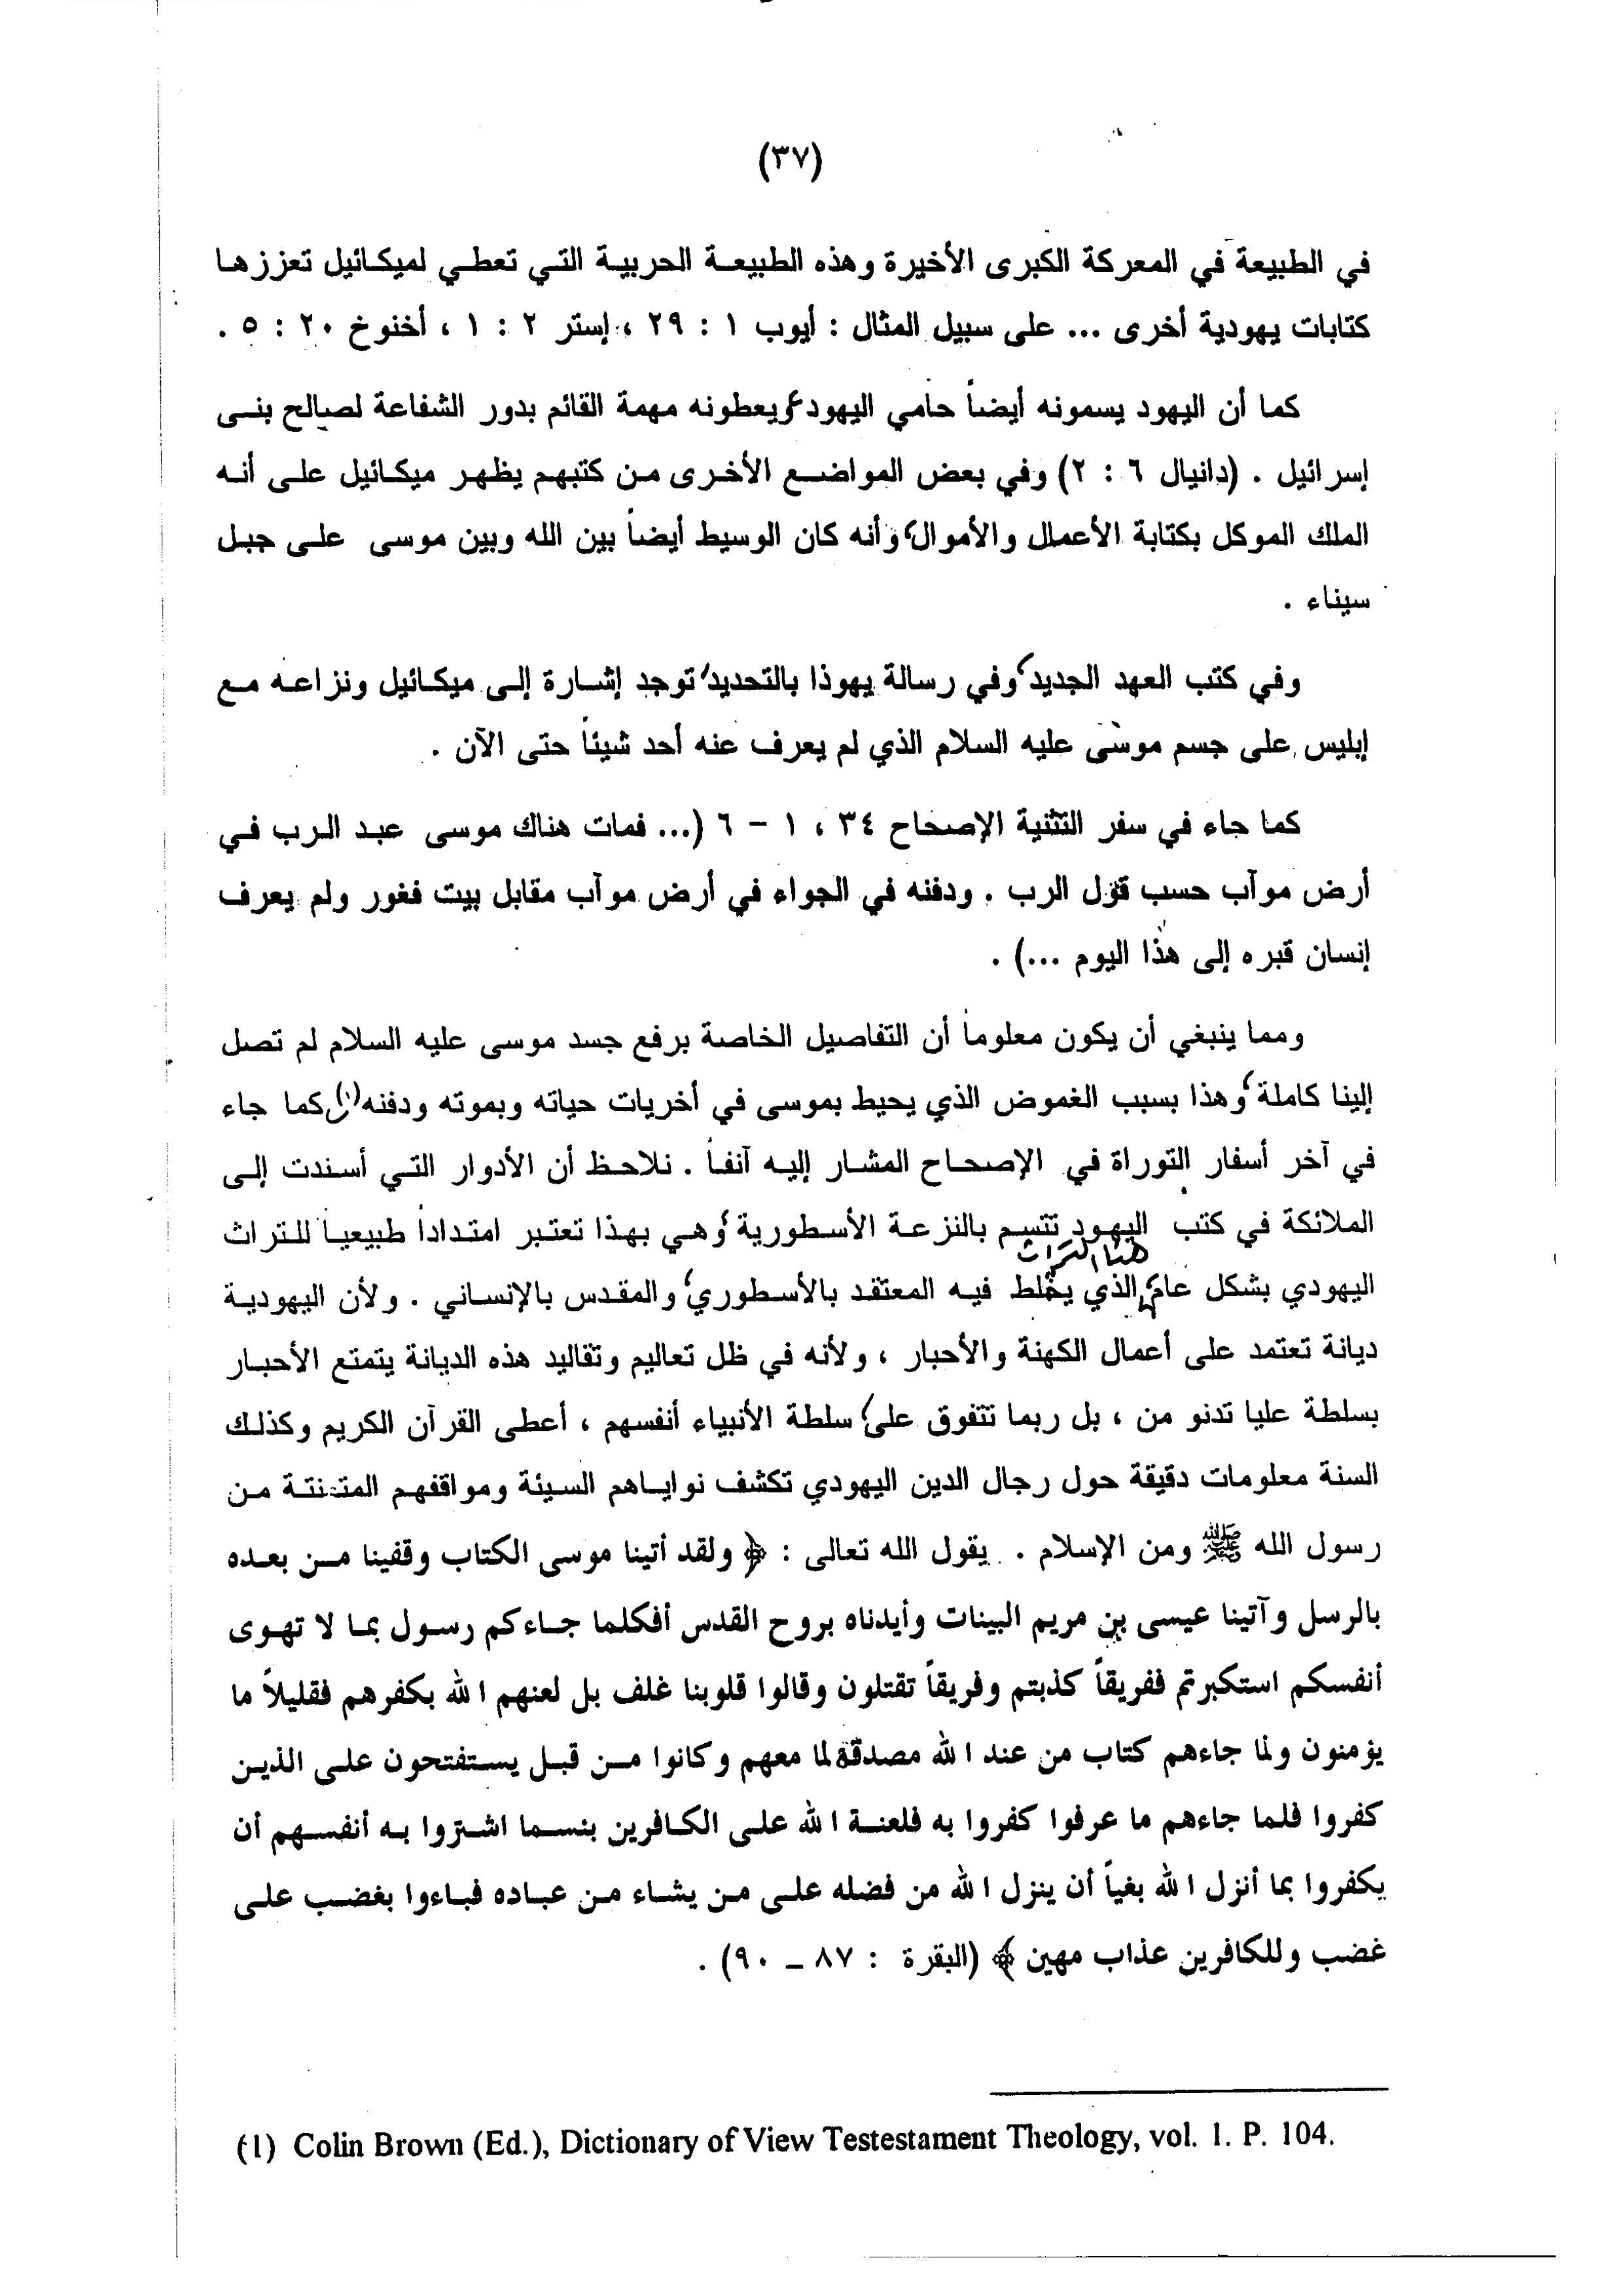 (٣٧)
في الطبيعة في المعركة الكبرى الأخيرة وهذه الطبيعة الحربية التي تعطي لميكائيل تعززها
كتابات يهودية أخرى ... على سبيل المثال : أيوب ١ : ٢٩ ، إستر ٢ : ١ ، أخنوخ ٢٠ : ٥ .
كما أن اليهود يسمونه أيضاً حامي اليهود ويعطونه مهمة القائم بدور الشفاعة لصالح بنى
إسرائيل . (دانيال ٦ : ٢) وفي بعض المواضع الأخرى من كتبهم يظهر ميكائيل على أنه
الملك الموكل بكتابة الأعمال والأموال، وأنه كان الوسيط أيضاً بين الله وبين موسى على جبل
سيناء .
وفي كتب العهد الجديد، وفي رسالة يهوذا بالتحديد، توجد إشارة إلى ميكائيل ونزاعه مع
إبليس على جسم موسى عليه السلام الذي لم يعرف عنه أحد شيئاً حتى الآن .
كما جاء في سفر التثنية الإصحاح ٣٤ ، ١ – ٦ (... فمات هناك موسى عبد الرب في
أرض موآب حسب قول الرب . ودفنه في الجواء في أرض موآب مقابل بيت فغور ولم يعرف
إنسان قبره إلى هذا اليوم ...) .
ومما ينبغي أن يكون معلوماً أن التفاصيل الخاصة برفع جسد موسى عليه السلام لم تصل
إلينا كاملة، وهذا بسبب الغموض الذي يحيط بموسى في أخريات حياته وبموته ودفنه(١) كما جاء
في آخر أسفار التوراة في الإصحاح المشار إليه آنفاً . نلاحظ أن الأدوار التي أسندت إلى
الملائكة في كتب اليهود تتسم بالنزعة الأسطورية، وهي بهذا تعتبر امتداداً طبيعياً للتراث
هذا التراث
اليهودي بشكل عام، الذي يخلط فيه المعتقد بالأسطوري، والمقدس بالإنساني . ولأن اليهودية
ديانة تعتمد على أعمال الكهنة والأحبار ، ولأنه في ظل تعاليم وتقاليد هذه الديانة يتمتع الأحبار
بسلطة عليا تدنو من ، بل ربما تتفوق على سلطة الأنبياء أنفسهم ، أعطى القرآن الكريم وكذلك
السنة معلومات دقيقة حول رجال الدين اليهودي تكشف نواياهم السيئة ومواقفهم المتعنتة من
رسول الله ﷺ ومن الإسلام . يقول الله تعالى : ﴿ ولقد أتينا موسى الكتاب وقفينا من بعده
بالرسل وآتينا عيسى بن مريم البينات وأيدناه بروح القدس أفكلما جاءكم رسول بما لا تهوى
أنفسكم استكبرتم ففريقاً كذبتم وفريقاً تقتلون وقالوا قلوبنا غلف بل لعنهم الله بكفرهم فقليلاً ما
يؤمنون ولما جاءهم كتاب من عند الله مصدق لما معهم وكانوا من قبل يستفتحون على الذين
كفروا فلما جاءهم ما عرفوا كفروا به فلعنة الله على الكافرين بئسما اشتروا به أنفسهم أن
يكفروا بما أنزل الله بغياً أن ينزل الله من فضله على من يشاء من عباده فباءوا بغضب على
غضب وللكافرين عذاب مهين ﴾ (البقرة : ٨٧ – ٩٠) .
(1) Colin Brown (Ed.), Dictionary of View Testestament Theology, vol. 1. P. 104.